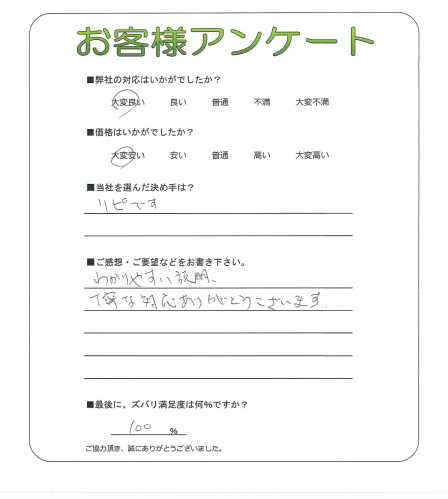 お客様アンケート
■弊社の対応はいかがでしたか?
大変良い 良い 普通 不満 大変不満
■価格はいかがでしたか?
大変安い 安い 普通 高い 大変高い
■当社を選んだ決め手は?
リピです
■ご感想・ご要望などをお書き下さい。
わかりやすい説明、
丁寧な対応ありがとうございます.
■最後に、ズバリ満足度は何%ですか?
100 %
ご協力頂き、誠にありがとうございました。